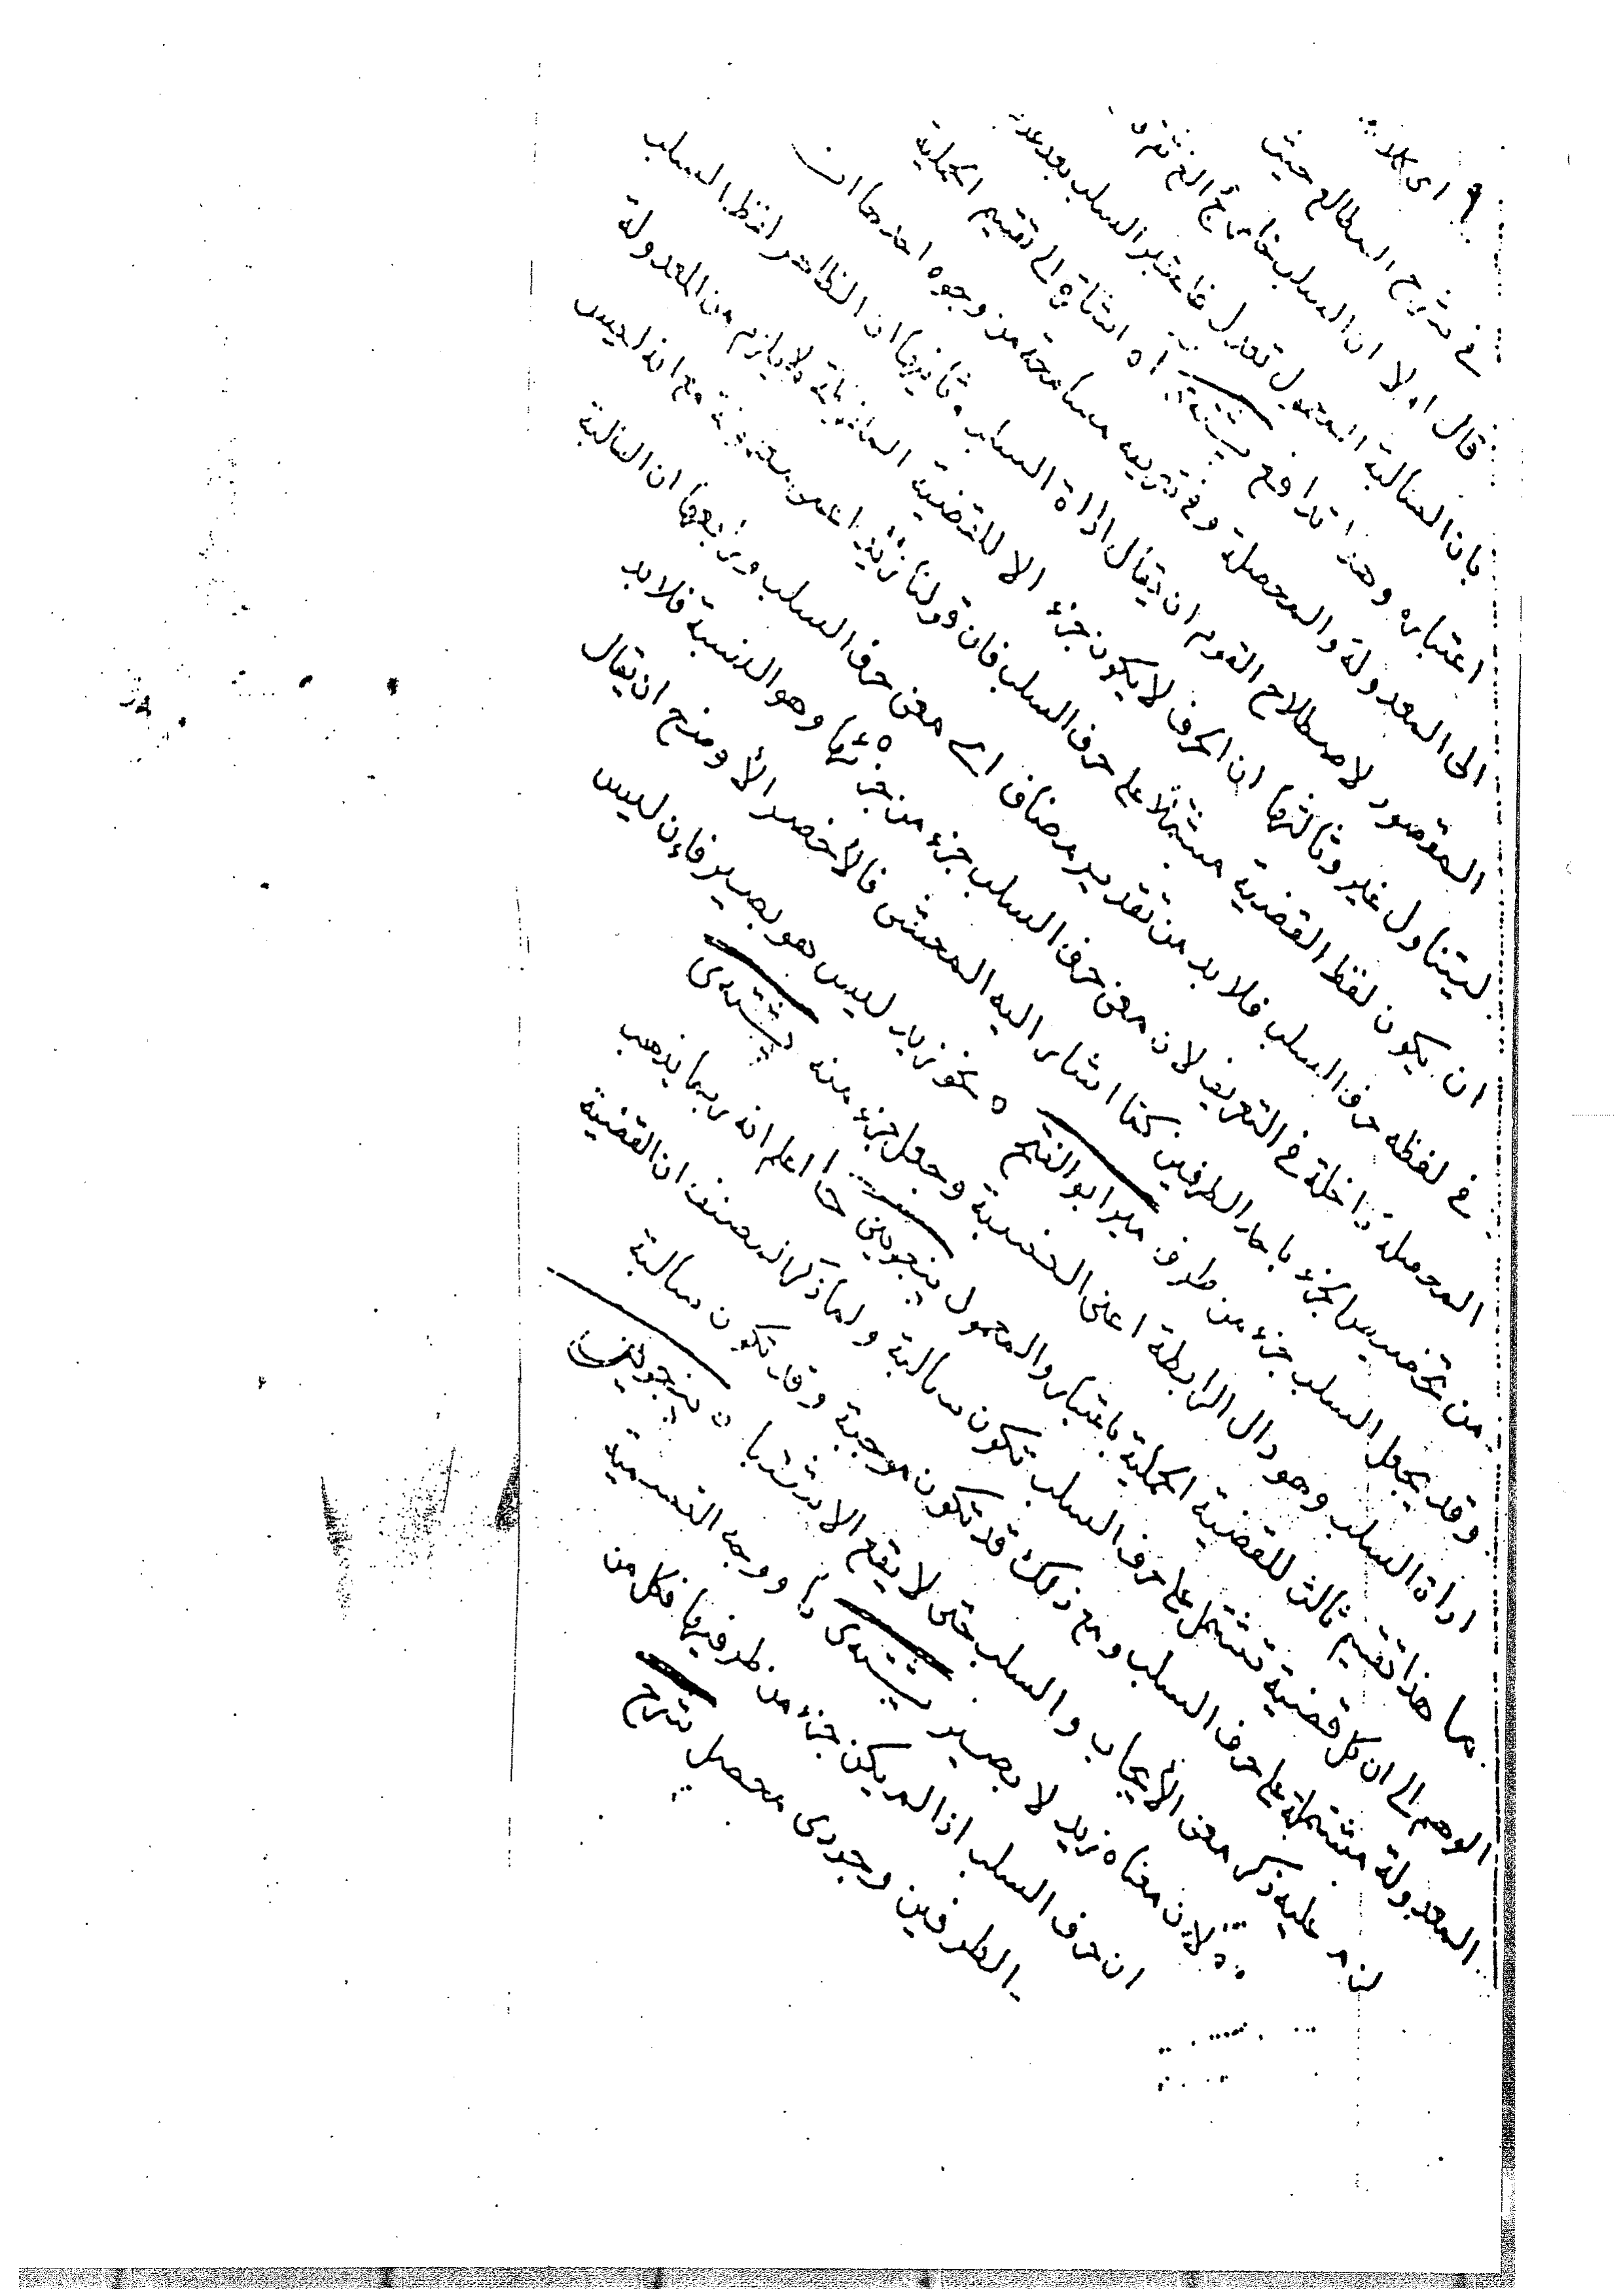 اى كلامه
فى شرح المطالع حيث
قال اولا ان السلب خارج الخ ثم
بان السالبة المحمول تعدل فاعتبر السلب بعد
اعتباره وهذا تدافع پشتدى اه اشارة الى تقسيم الحملية
الى المعدولة والمحصلة وفى تعريفه مسامحة من وجوه احدها ان
المقصود لاصطلاح القوم ان يقال اداة السلب وثانيها ان الظاهر لفظ السلب
ليتناول غير وثالثها ان الحرف لا يكون جزء الا للقضية الملفوظة ولا يلزم من المعدولة
ان يكون لفظ القضية مشتملا على حرف السلب فان قولنا زيد اعمى معدولة مع انه ليس
فى لفظه حرف السلب فلا بد من تقدير مضاف اى معنى حرف السلب ورابعها ان السالبة
المحصلة داخلة فى التعريف لان معنى حرف السلب جزء من جزئها وهو النسبة فلا بد
من تخصيص الجزء باحد الطرفين كما اشار اليه المحشى فالأخصر الأوضح ان يقال
وقد يجعل السلب جزء من طرف مير ابو الفتح ه نحو زيد ليس هو بصير فإن ليس
اداة السلب وهو دال الرابطة اعنى النسبة وجعل جزء منه پشتدى
ما هذا تقسيم ثالث للقضية الحملية باعتبار المحمول پنجوينى حا اعلم انه ربما يذهب
الوهم الى ان كل قضية تشتمل على حرف السلب تكون سالبة ولما ذكر المصنف ان القضية
المعدولة مشتملة على حرف السلب ومع ذلك قد تكون موجبة وقد تكون سالبة
لزم عليه ذكر معنى الأيجاب والسلب حتى لا يقع الاشتباه پنجوينى
لان معناه زيد لا بصير پشتدى ووجه التسمية
ان حرف السلب اذا لم يكن جزء من طرفيها فكل من
الطرفين وجودى محصل شرح